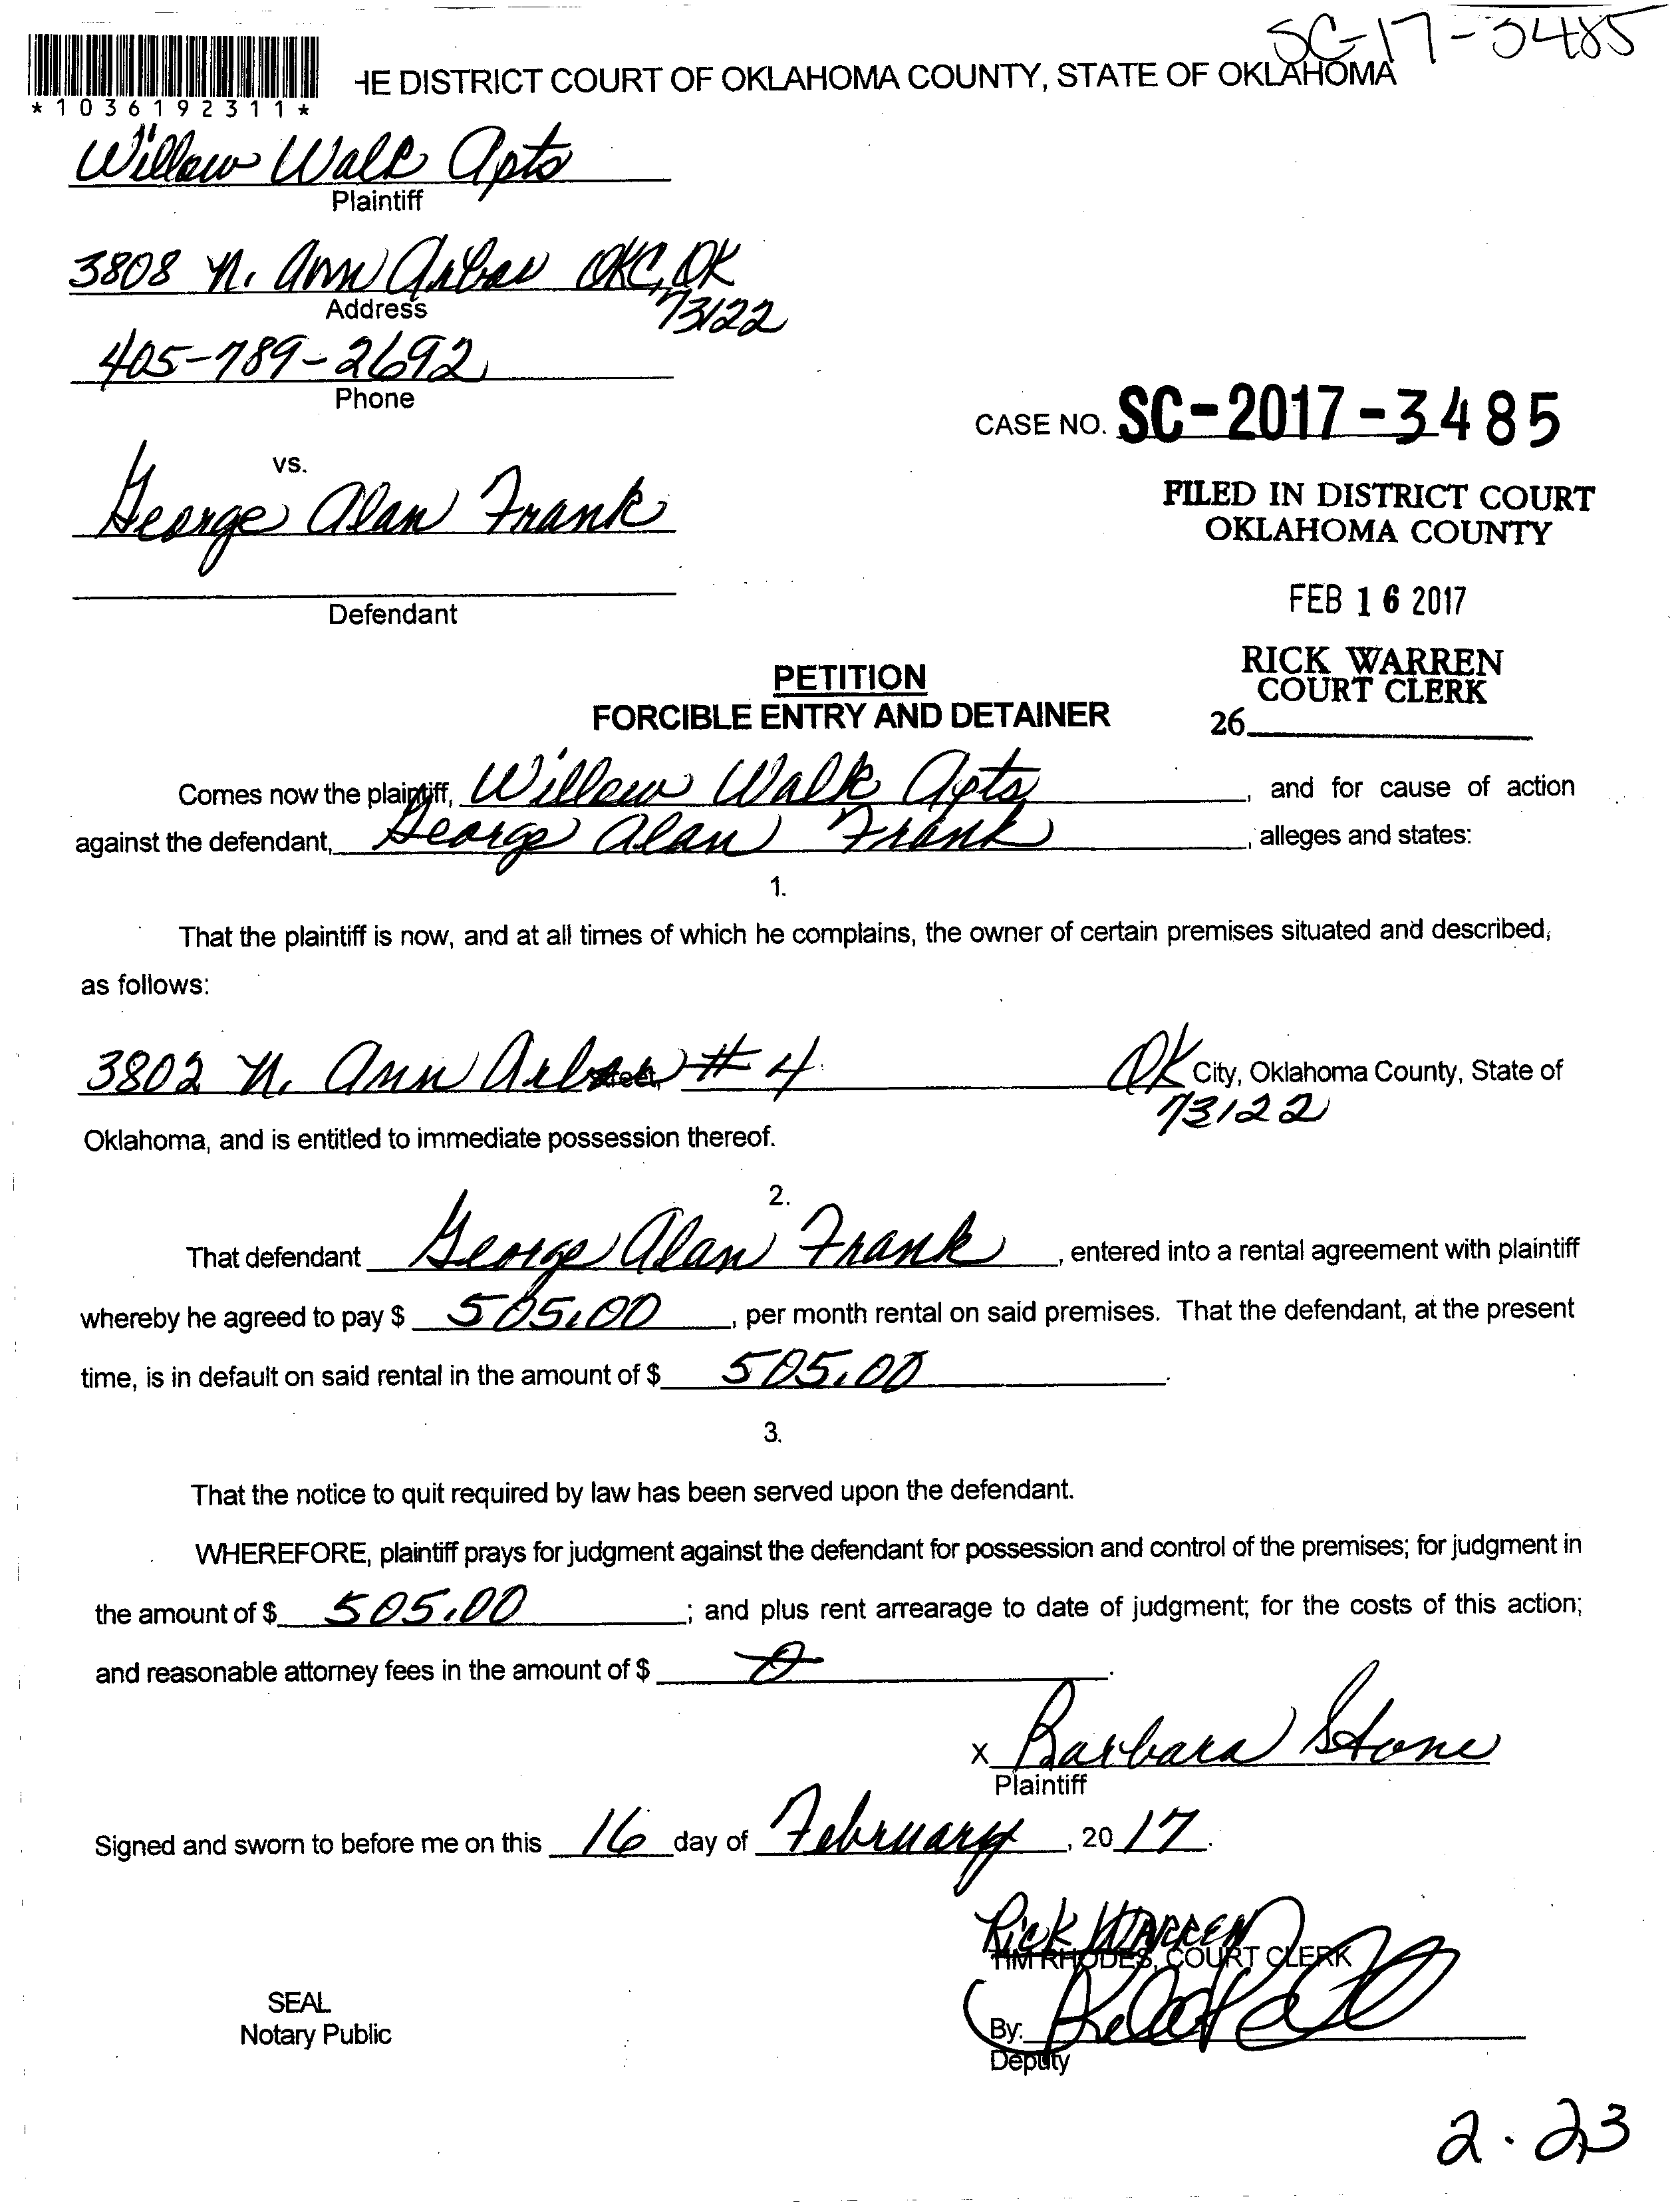 SC-17-3485
HE DISTRICT COURT OF OKLAHOMA COUNTY, STATE OF OKLAHOMA
*1036192311*
Willow Walk Apts
Plaintiff
3808 N. Ann Arbor OKC, OK
73122
Address
405-789-2692
Phone
CASE NO. SC-2017-3485
vs.
George Alan Frank
Defendant
FILED IN DISTRICT COURT
OKLAHOMA COUNTY
FEB 16 2017
RICK WARREN
COURT CLERK
26
PETITION
FORCIBLE ENTRY AND DETAINER
Comes now the plaintiff, Willow Walk Apts, and for cause of action
against the defendant, George Alan Frank, alleges and states:
1.
That the plaintiff is now, and at all times of which he complains, the owner of certain premises situated and described,
as follows:
3802 N. Ann Arbor #4 OK City, Oklahoma County, State of
73122
Oklahoma, and is entitled to immediate possession thereof.
2.
That defendant George Alan Frank, entered into a rental agreement with plaintiff
whereby he agreed to pay $ 505.00, per month rental on said premises. That the defendant, at the present
time, is in default on said rental in the amount of $ 505.00.
3.
That the notice to quit required by law has been served upon the defendant.
WHEREFORE, plaintiff prays for judgment against the defendant for possession and control of the premises; for judgment in
the amount of $ 505.00; and plus rent arrearage to date of judgment; for the costs of this action;
and reasonable attorney fees in the amount of $ 0.
X Barbara Stone
Plaintiff
Signed and sworn to before me on this 16 day of February, 2017.
Rick Warren
TIM RHODES, COURT CLERK
SEAL
Notary Public
By:
Deputy
2.23